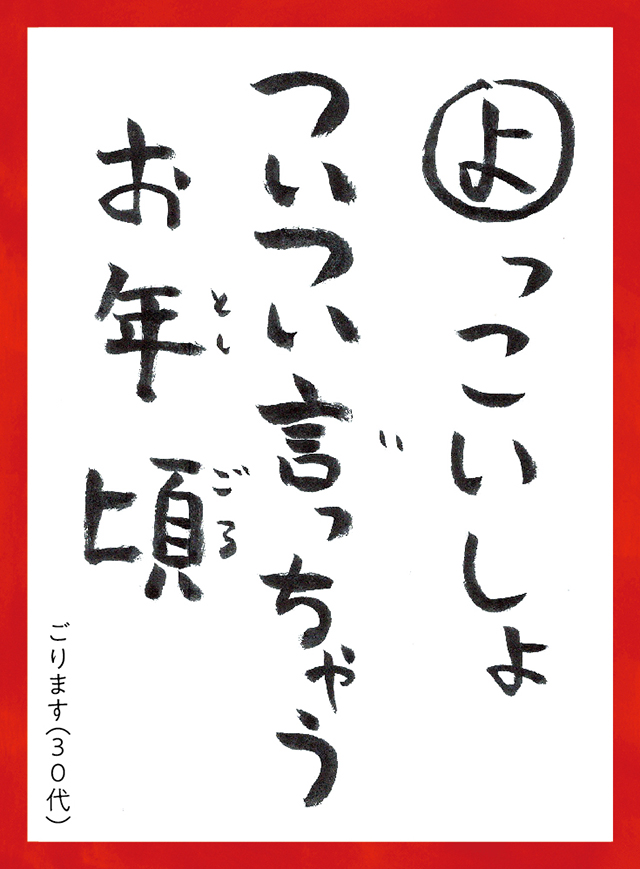 よっこいしょ
ついつい言っちゃう
い
お年頃
とし ごろ
ごります(30代)